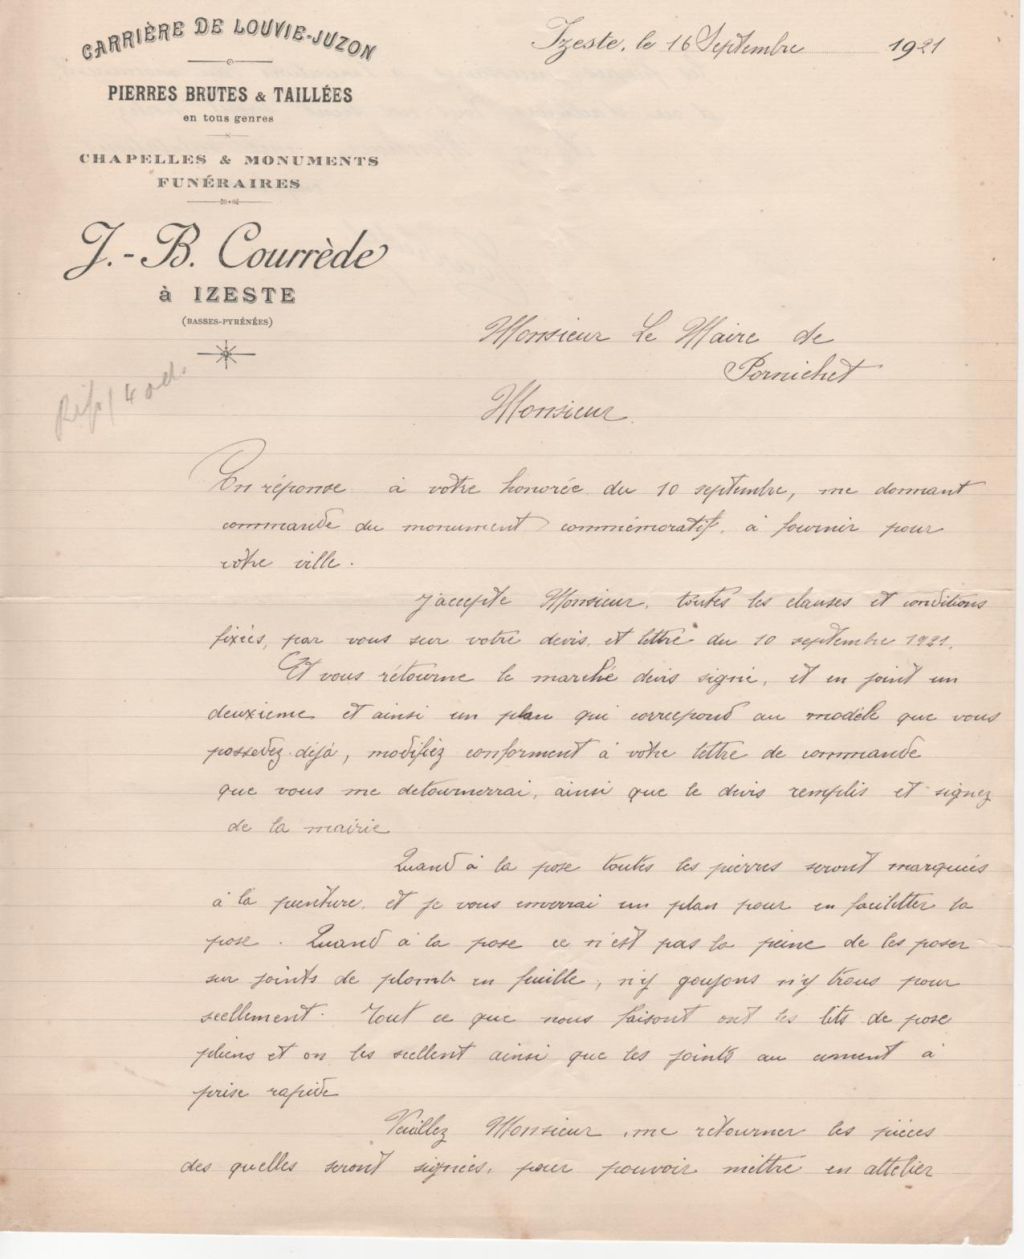 CARRIÈRE DE LOUVIE-JUZON
PIERRES BRUTES & TAILLÉES
en tous genres
CHAPELLES & MONUMENTS
FUNÉRAIRES
J.-B. Courrède
à IZESTE
(BASSES-PYRÉNÉES)
Izeste, le 16 Septembre 1921
Monsieur Le Maire de
Pornichet
Monsieur
En réponse à votre honorée du 10 septembre, me donnant
commande du monument commémoratif, à fournir pour
votre ville.
J'accepte Monsieur, toutes les clauses et conditions
fixées, par vous sur votre devis et lettre du 10 septembre 1921.
Et vous retourne le marché devis signé, et en joint un
deuxieme et ainsi un plan qui correspond au modèle que vous
possedez déjà, modifiez conforment à votre lettre de commande
que vous me detournerrai, ainsi que le devis remplis et signez
de la mairie
Quand à la pose toutes les pierres seront marquées
à la peinture, et je vous enverrai un plan pour en faciletter la
pose. Quand à la pose ce n'est pas la peine de les poser
sur joints de plomb en feuille, n'y goujons n'y trous pour
scellement. Tout ce que nous faisont ont les lits de pose
pleins et on les scellent ainsi que les joints au ciment à
prise rapide
Veuillez Monsieur, me retourner les pièces
des quelles seront signées, pour pouvoir mettre en attelier